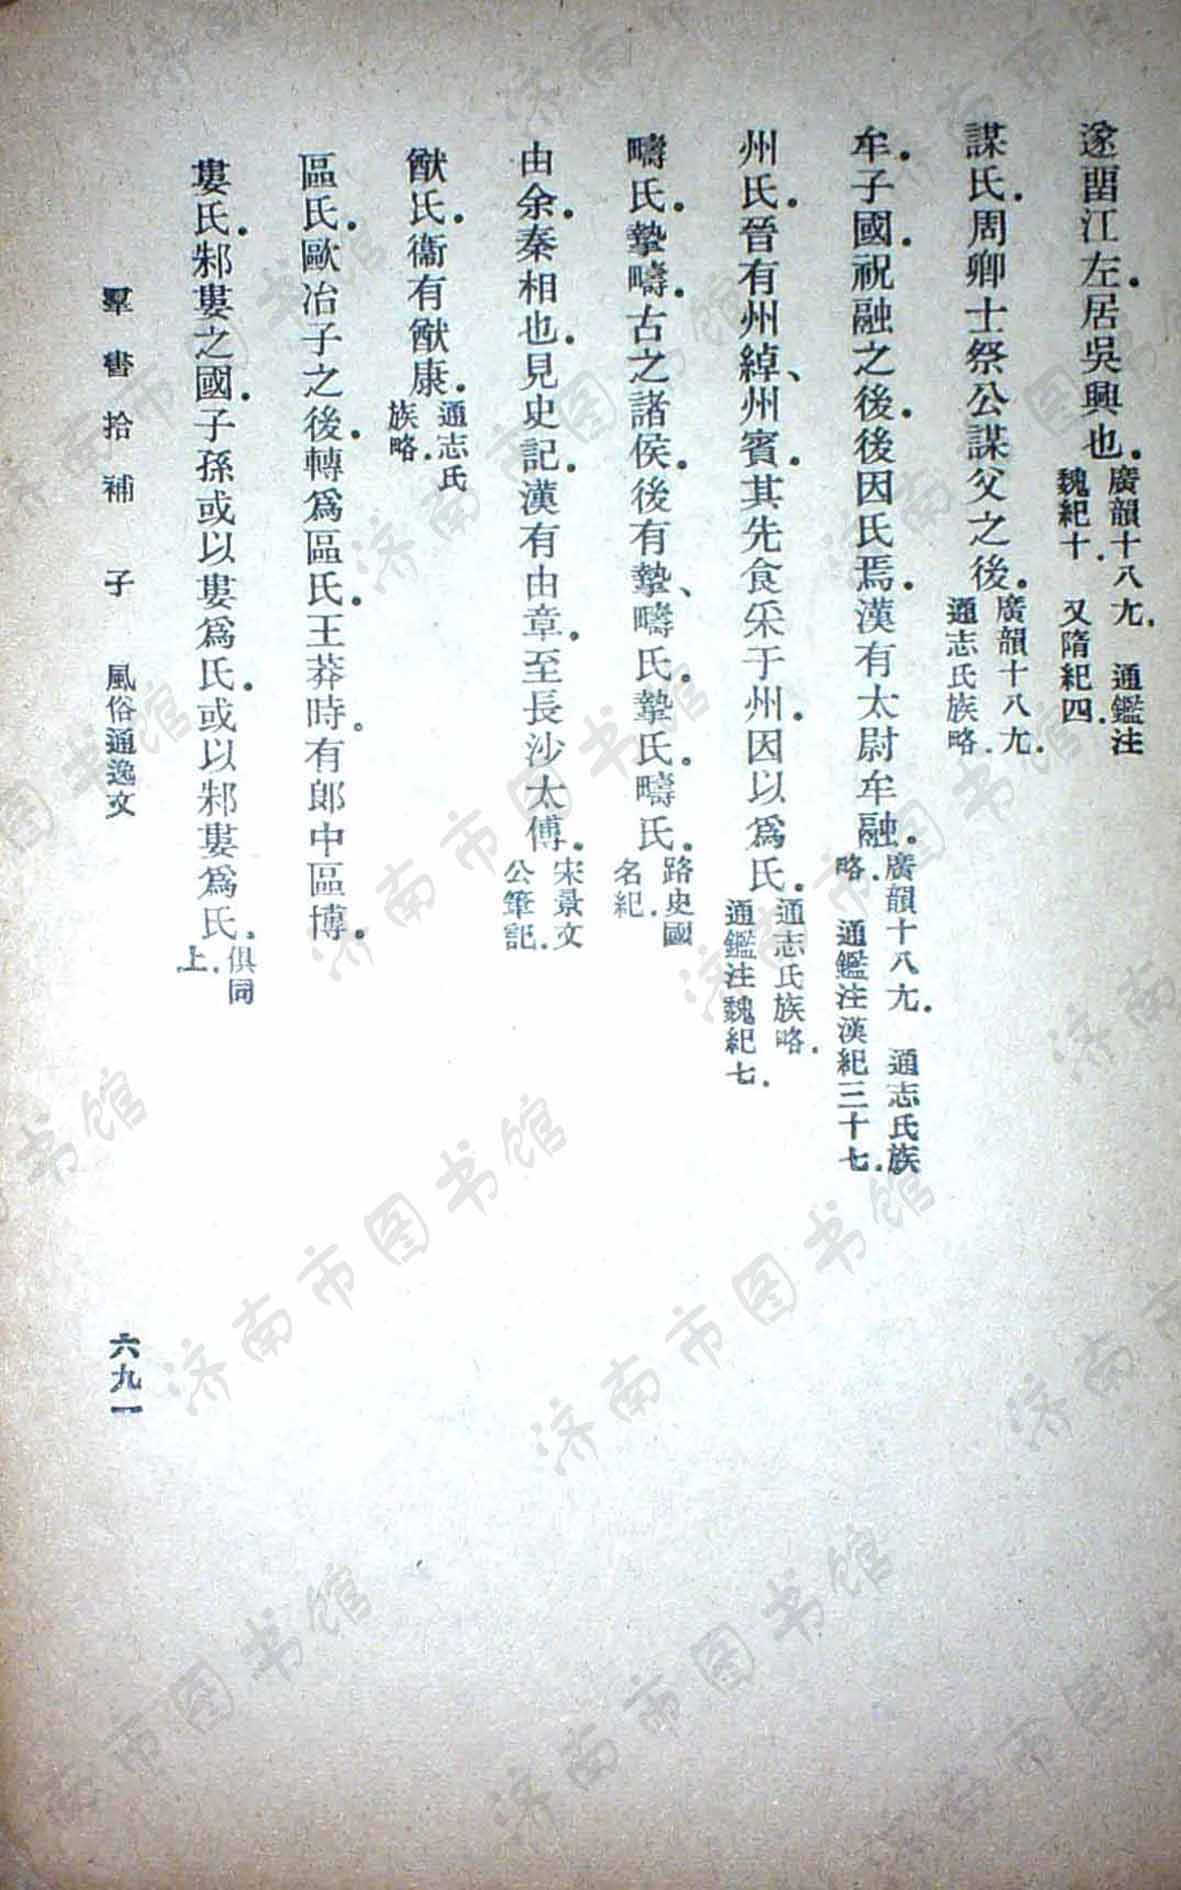 遂畱江左．居吳興也．廣韻十八尤．　通鑑注魏紀十．　又隋紀四．
謀氏．周卿士祭公謀父之後．廣韻十八尤．通志氏族略．
牟．子國．祝融之後．後因氏焉．漢有太尉牟融．廣韻十八尤．　通志氏族略．　通鑑注漢紀三十七．
州氏．晉有州綽、州賓．其先食采于州．因以爲氏．通志氏族略．通鑑注魏紀七．
疇氏．摯疇．古之諸侯．後有摯、疇氏．摯氏．疇氏．路史國名紀．
由余．秦相也．見史記．漢有由章．至長沙太傅．宋景文公筆記．
猷氏．衞有猷康．通志氏族略．
區氏．歐冶子之後．轉爲區氏．王莽時．有郎中區博．
婁氏．邾婁之國．子孫或以婁爲氏．或以邾婁爲氏．俱同上．
羣書拾補　子　風俗通逸文
六九一
济南市图书馆